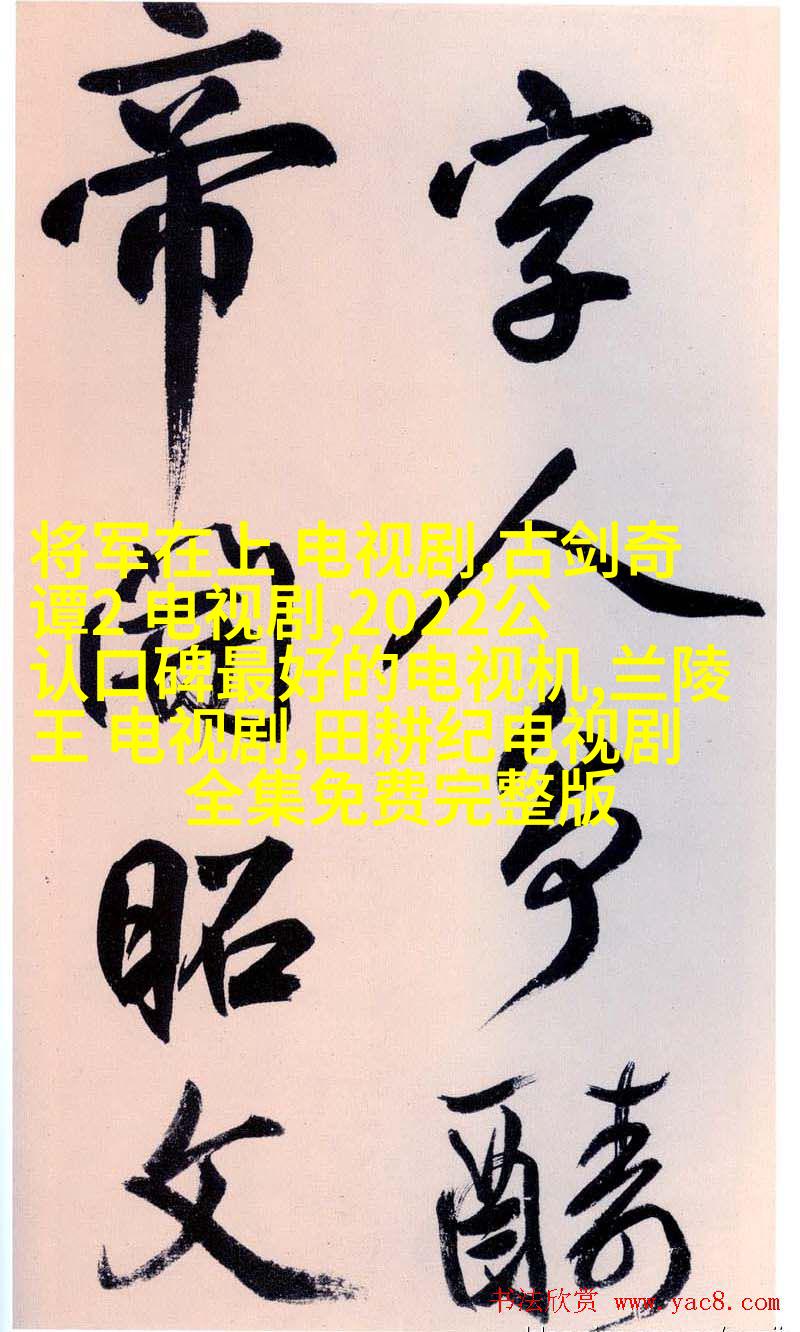 字人争醻
帝 昭文
将军在上 电视剧,古剑奇
谭2 电视剧,2022公
认口碑最好的电视机,兰陵
王 电视剧,田耕纪电视剧
全集免费完整版
书法欣赏 www.yac8.com